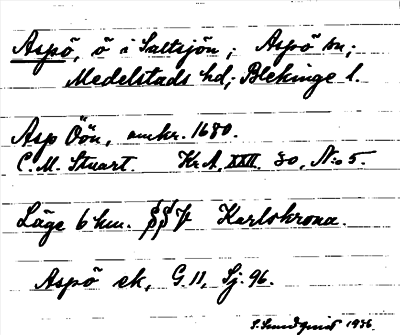 Aspö, ö i Saltsjön; Aspö sn;
Medelstads hd; Blekinge l.
Asp Öön, omkr. 1680.
C. M. Stuart. Kr. A, XXII. 30, N:o 5.
Läge 6 km. Karlskrona.
Aspö ek, G. 11, Sj. 96.
S. Sundqvist 1936